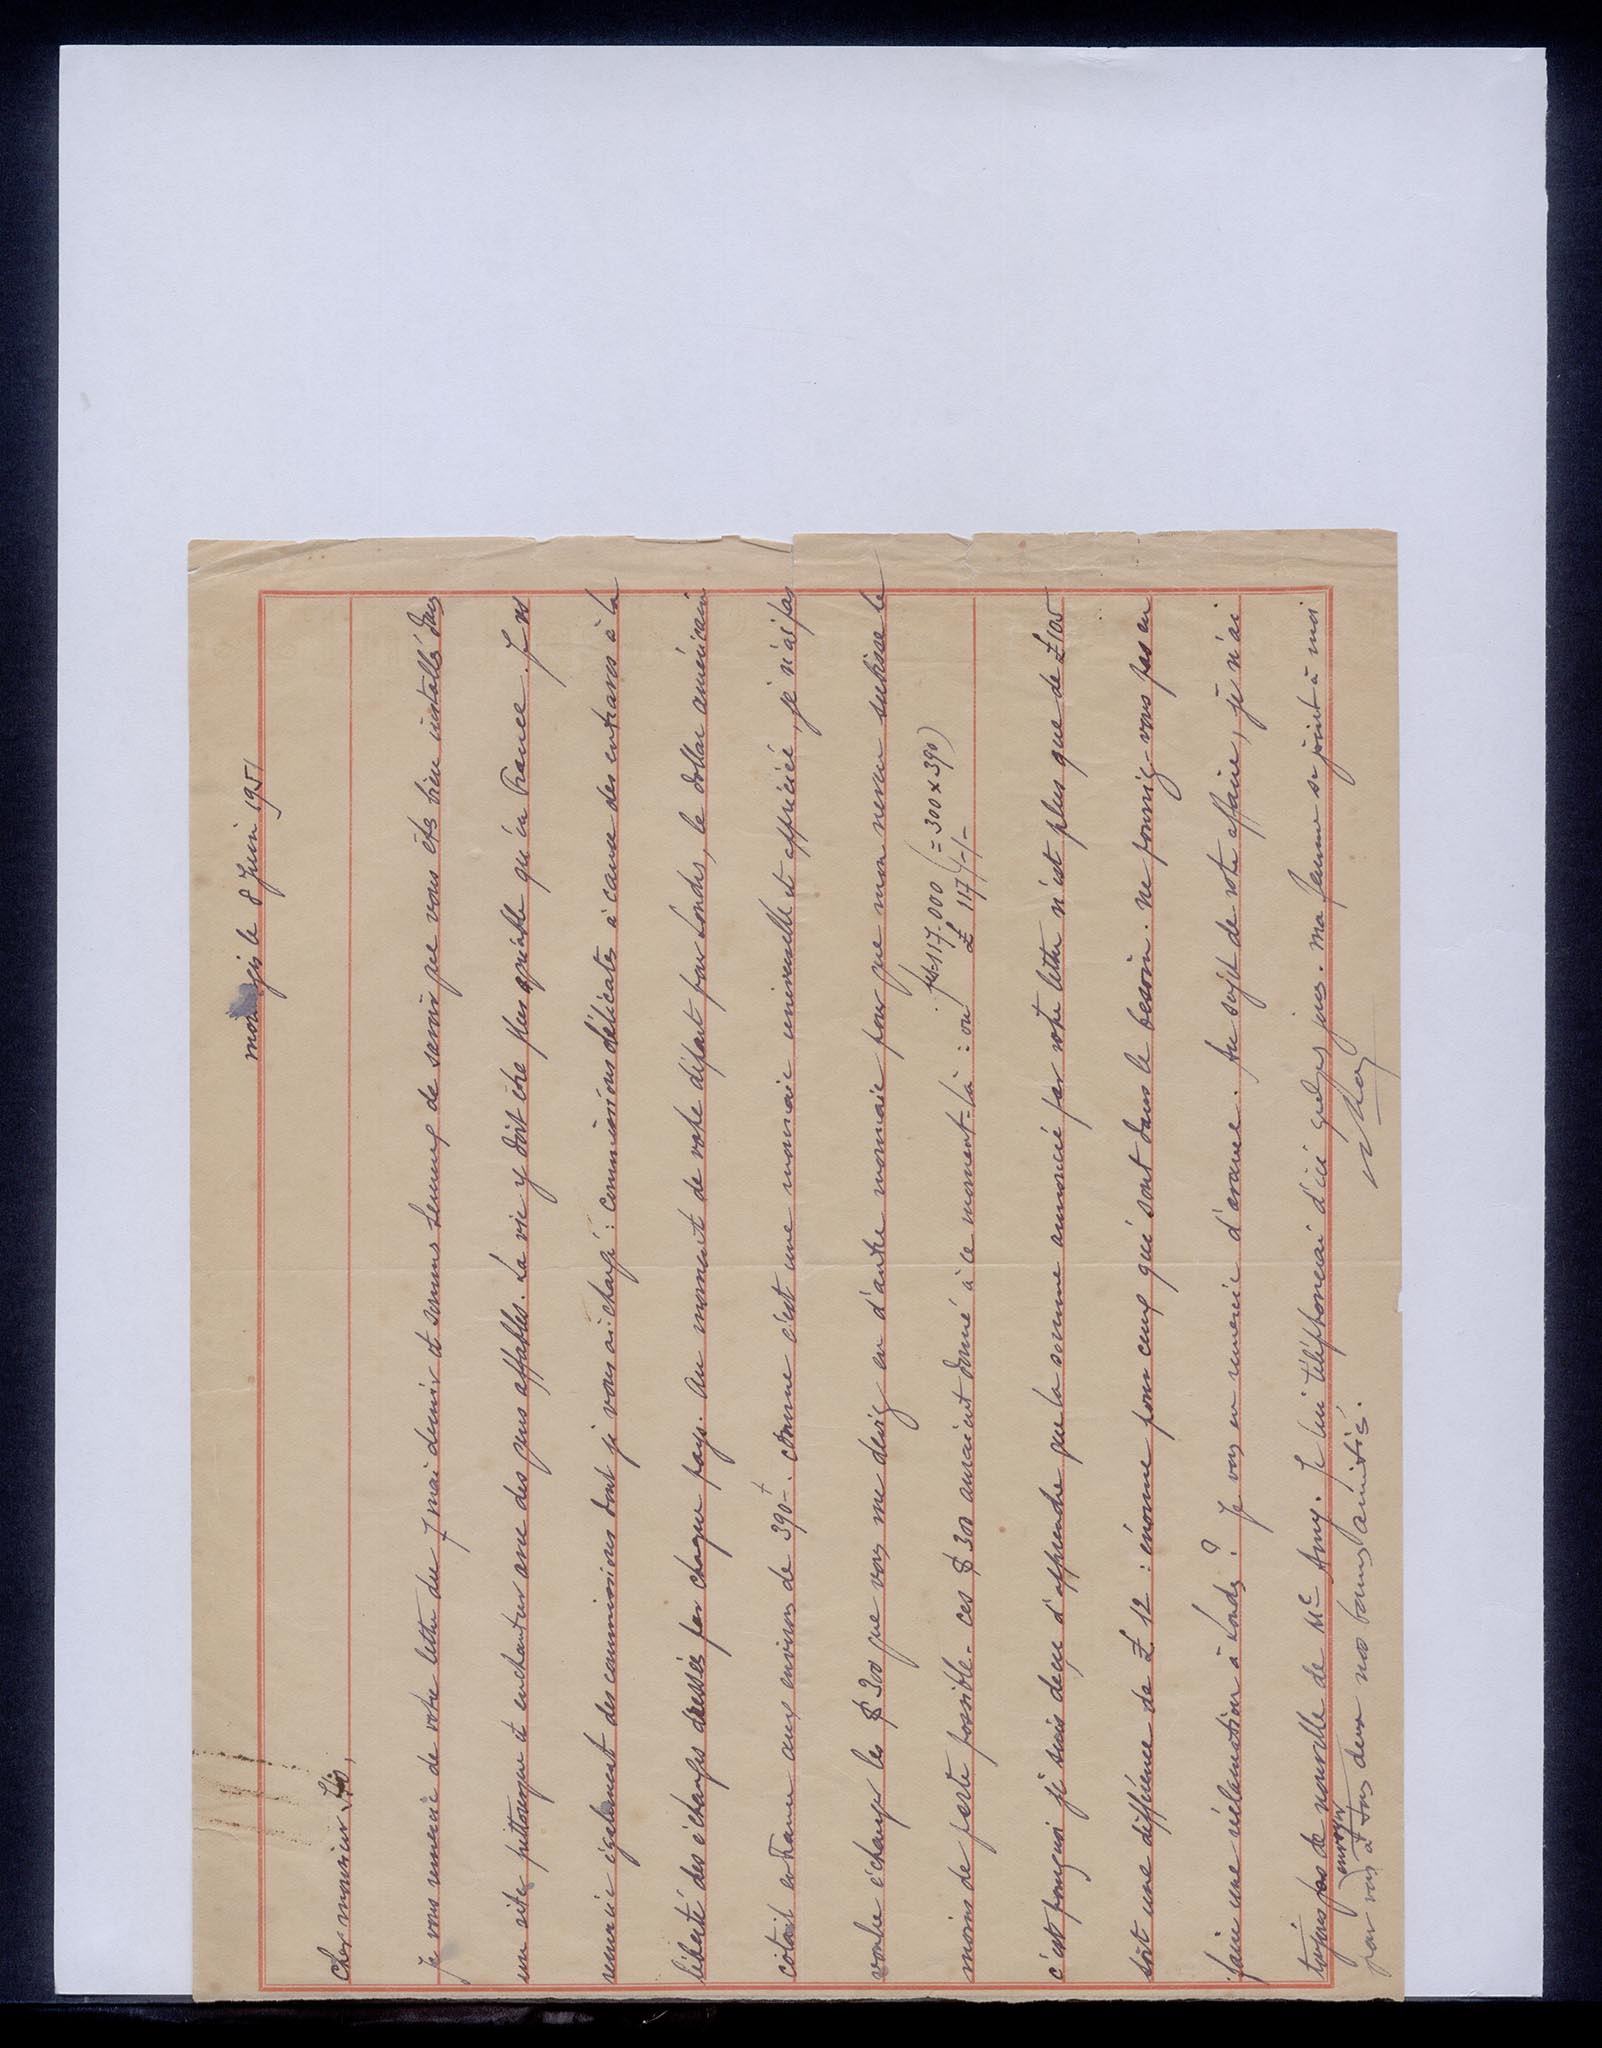 montargis le 8 Juin 1951
Cher monsieur
je vous remercie de votre lettre du 7 mai dernier et sommes heureux de savoir que vous êtes bien installé dans
un site pittoresque et enchanteur avec des gens affables. La vie y doit être plus agréable qu'en France. Je vs
remercie également des commissions dont je vous ai chargé : commissions délicates à cause des entraves à la
liberté des échanges dressées par chaque pays. Au moment de votre départ pour Londres, le dollar américain
cotait en France aux environs de 390-. comme c'est une monnaie universelle et appréciée, je n'ai pas
voulu échanger les $ 300 que vous me devez en d'autre monnaie pour que mon neveu subisse le
moins de perte possible. ces $ 300 auraient donné à ce moment-là : frs 117.000 (= 300 x 390)
ou £ 117/-/-
c'est pourquoi je suis déçu d'apprendre que la somme annoncée par votre lettre n'est plus que de £ 105
soit une différence de £ 12 : énorme pour ceux qui sont dans le besoin. ne pourriez-vous pas en
faire une réclamation à Londres ? Je vous en remercie d'avance. Au sujet de votre affaire, je n'ai
toujours pas de nouvelle de Me Amy. Je lui téléphonerai d'ici quelques jours. ma femme se joint à moi
pour vous envoyer à tous deux nos bonnes amitiés.